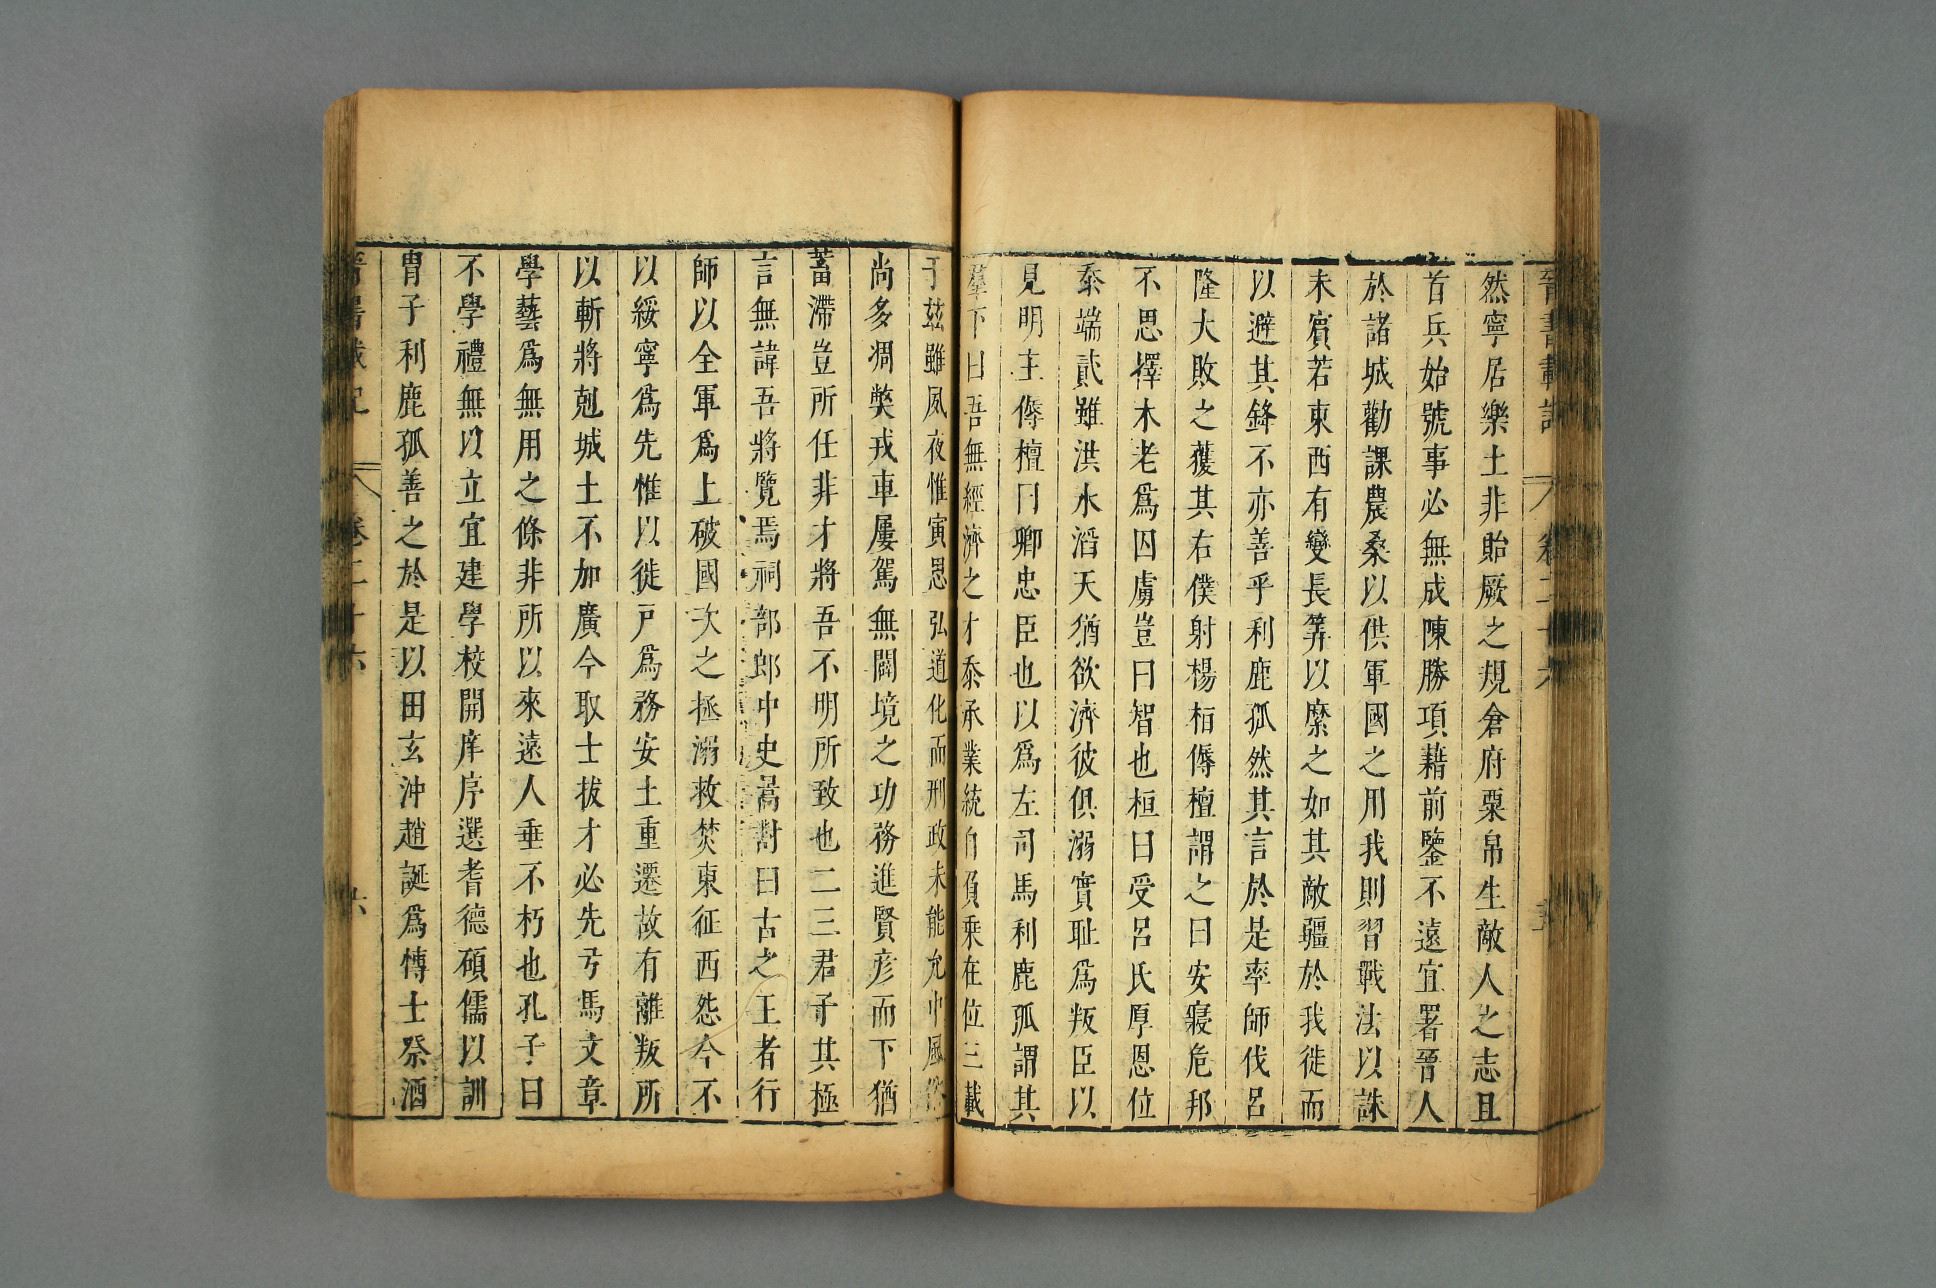 晉書載記 卷二十六
然寧居樂土非貽厥之規倉府粟帛生敵人之志且
首兵始號事必無成陳勝項藉前鑒不遠宜署晉人
於諸城勸課農桑以供軍國之用我則習戰法以誅
未賓若東西有變長筭以縻之如其敵疆於我徙而
以避其鋒不亦善乎利鹿孤然其言於是率師伐呂
隆大敗之獲其右僕射楊栢傉檀謂之曰安寢危邦
不思擇木老爲囚虜豈曰智也桓曰受呂氏厚恩位
忝端貳雖洪水滔天猶欲濟彼俱溺實恥爲叛臣以
見明主傉檀曰卿忠臣也以爲左司馬利鹿孤謂其
羣下曰吾無經濟之才忝承業統自負乗在位三載
于兹雖夙夜惟寅思弘道化而刑政未能允中風俗
尚多凋獘戎車屢駕無闢境之功務進賢彦而下猶
蓄滯豈所任非才將吾不明所致也二三君子其極
言無諱吾將覽焉祠部郎中史暠對曰古之王者行
師以全軍爲上破國次之拯溺救焚東征西怨今不
以綏寧爲先惟以徙戸爲務安土重遷故有離叛所
以斬將剋城土不加廣今取士拔才必先弓馬文章
學藝爲無用之條非所以來遠人垂不朽也孔子曰
不學禮無以立宜建學校開庠序選耆德碩儒以訓
胄子利鹿孤善之於是以田玄沖趙誕爲博士祭酒
晉書載記 卷二十六 六